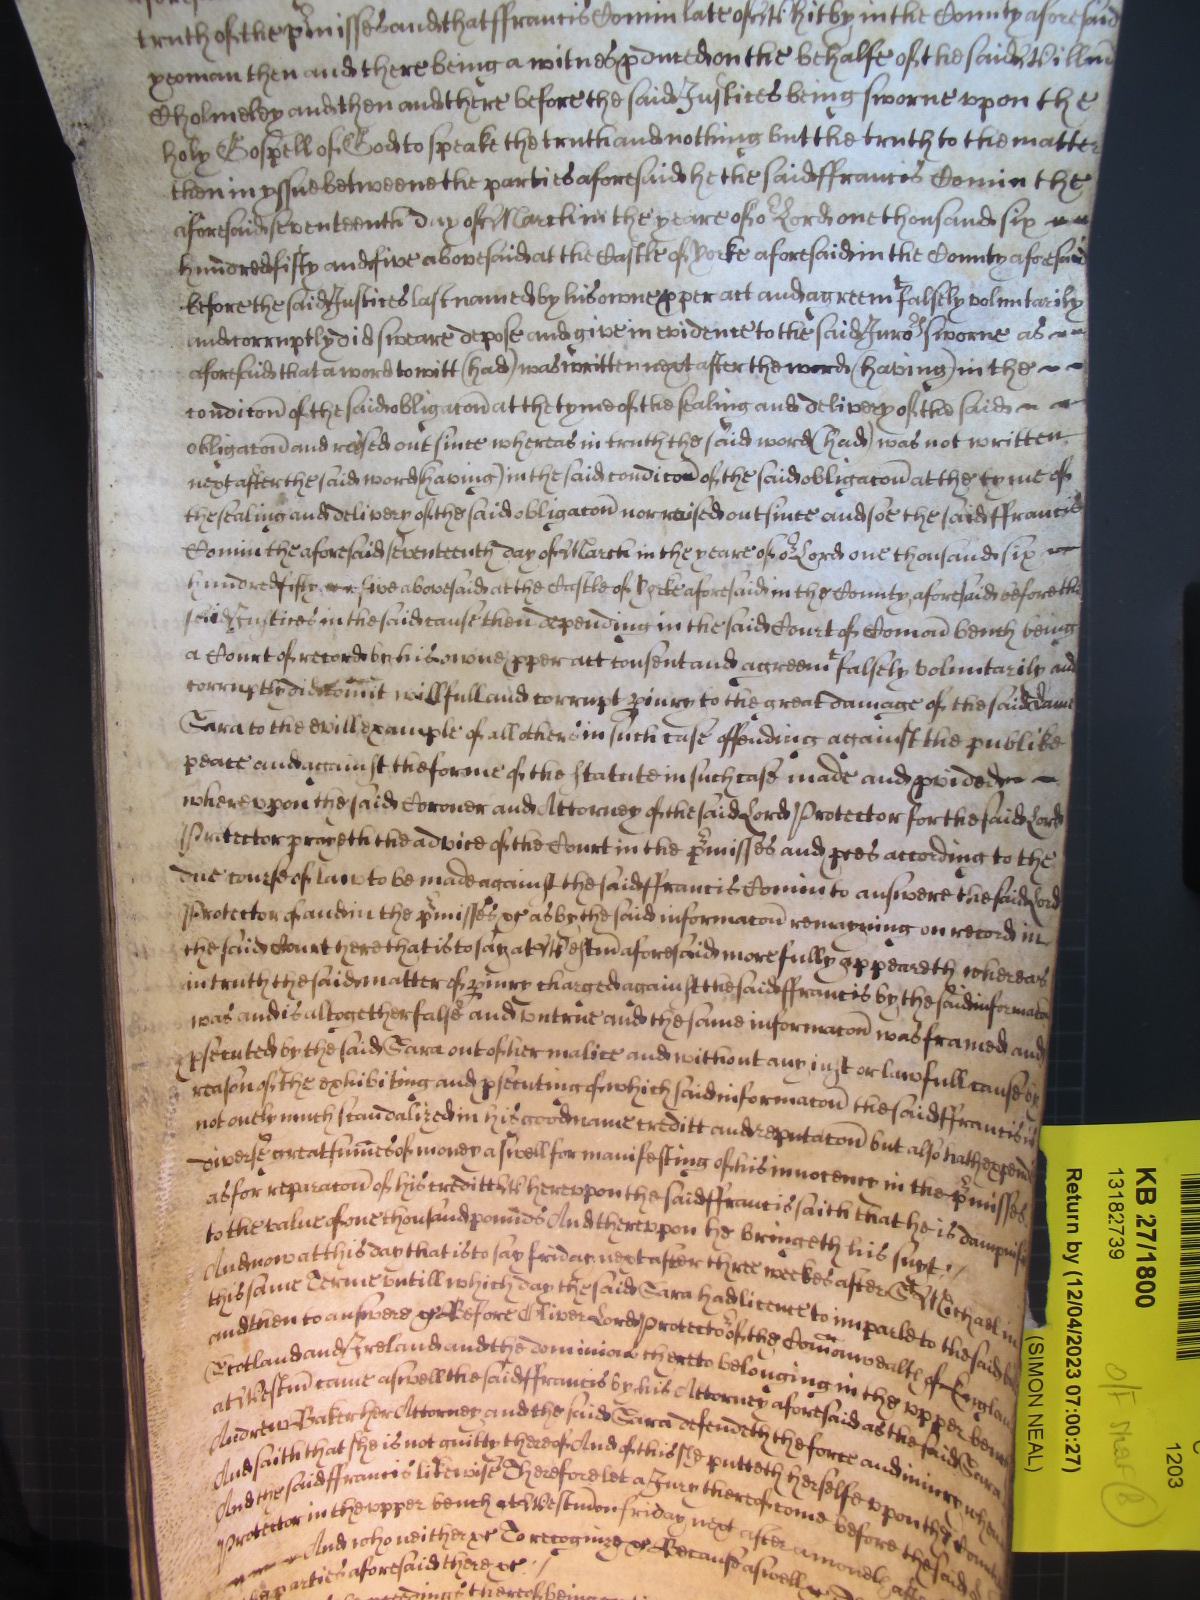 truth of the p̃misses and that ffrancis Comin late of Whitby in the County aforesaid
yeoman then and there being a witnes pduced on the behalfe of the said Willm̃
Cholmeley and then and there before the said Justices being sworne vpon the
holy Gospell of God to speake the truth and nothing but the truth to the matter
then in yssue betweene the parties aforesaid he the said ffrancis Comin the
aforesaid seventeenth day of March in the yeare of or Lord one thousand six
hundred fifty and five abovesaid at the Castle of Yorke aforesaid in the County aforesaid
before the said Justices last named by his owne pper act and agreemt falsely voluntarily
and corruptly did sweare depose and give in evidence to the said Jurors sworne as
aforesaid that a word to witt (had) was written next after the word (having) in the
condic̃on of the said obligac̃on at the tyme of the sealing and delivery of the said
obligac̃on and rased out since whereas in truth the said word (had) was not written
next after the said word (having) in the said condic̃on of the said obligac̃on at the tyme of
the sealing and delivery of the said obligac̃on nor raised out since and soe the said ffrancis
Comin the aforesaid seventeenth day of March in the yeare of or Lord one thousand six
hundred fifty five abovesaid at the Castle of Yorke aforesaid in the County aforesaid before the
said Justices in the said cause then depending in the said Court of Com̃on bench being
a Court of record by his owne pper act consent and agreemt falsely voluntarily and
corruptly did com̃it willfull and corrupt piury to the great damage of the said Dame
Sara to the evill example of all others in such case offending against the publike
peace and against the forme of the statute in such case made and pvided
wherevpon the said Coroner and Attorney of the said Lord Protector for the said Lord
Protector prayeth the advice of the Court in the p̃misses and pces according to the
due course of law to be made against the said ffrancis Comin to answere the said Lord
Protector of and in the p̃misses &c as by the said informac̃on remayning on record in
the said Court here that is to say at Westm̃ aforesaid more fully appeareth whereas
in truth the said matter of piury charged against the said ffrancis by the said informac̃on
was and is altogether false and vntrue and the same informac̃on was framed and
psecuted by the said Sara out of her malice and without any iust or lawfull cause by
reason of the exhibiting and psecuting of which said informac̃on the said ffrancis is
not onely much scandalized in his good name creditt and reputac̃on but also hath expend
diverse great sum̃es of money aswell for manifesting of his innocence in the p̃misses
as for reparac̃on of his creditt Wherevpon the said ffrancis saith that he is dampnif
to the value of one thousand pounds And therevpon he bringeth his suyt &c
And now at this day that is to say friday next after three weekes after St Michael in
this same Terme vntill which day the said Sara had licence to imparle to the said bi
and then to answere &c Before Oliver Lord Protector of the Com̃onwealth of Englan
Scotland and Ireland and the dominions thereto belonging in the vpper bench
at Westm̃ came aswell the said ffrancis by his Attorney aforesaid as the said Sara
Andrew Baker her Attorney and the said Sara defendeth the force and iniury when
And saith that she is not guilty thereof And of this she putteth herselfe vpon the Count
And the said ffrancis likewise Therefore let a Jury thereof come before the said
Protector in the vpper bench at Westm̃on friday next after a moneth after
And who neither &c To recognize &c Because aswell &c
the parties aforesaid there &c
thereof being
KB 27/1800
13182739
Return by (12/04/2023 07:00:27)
(SIMON NEAL)
1203